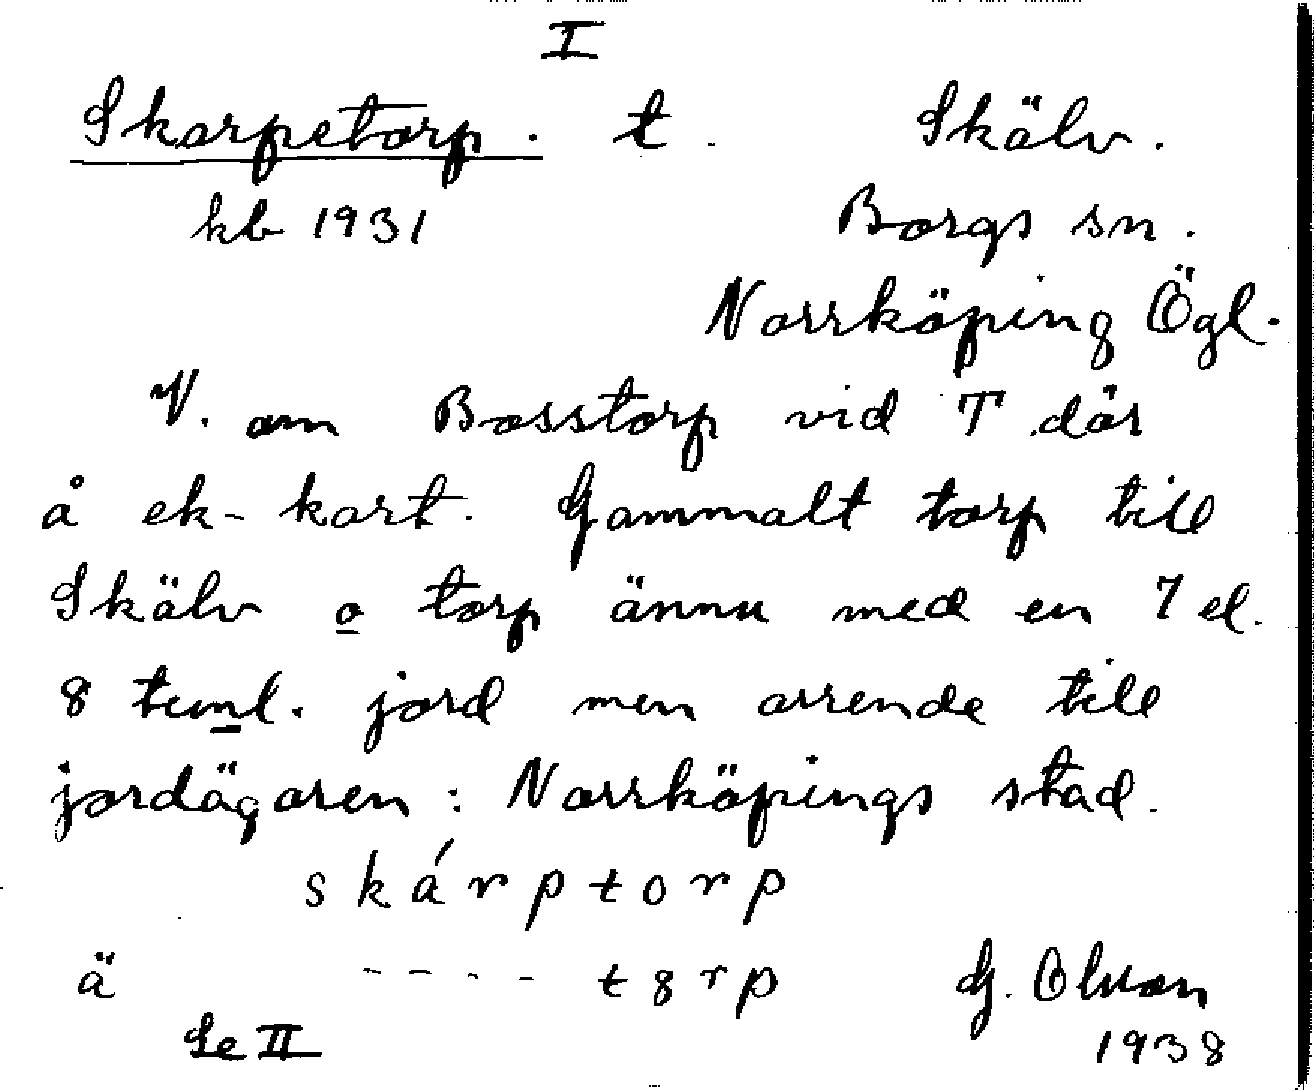 I
Skarpetorp. t. Skälv.
kb 1931 Borgs sn.
Norrköping Ögl.
V. om Bosstorp vid T där
å ek-kart. Gammalt torp till
Skälv o torp ännu med en 7 el.
8 tunl. jord men arrende till
jordägaren: Norrköpings stad.
skárptorp
ä ---- t8rp G. Olson
Se II 1938